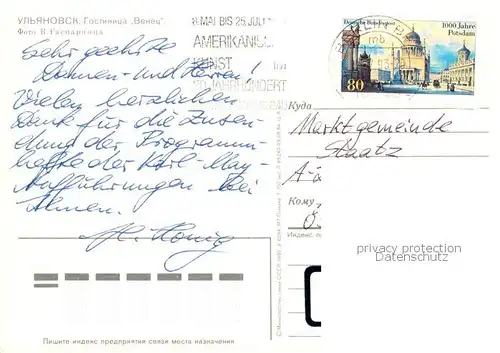 УЛЬЯНОВСК. Гостиница „Венец".
Фото В. Гаспарянца
MAI BIS 25. JULI
AMERIKANIS
KUNST im
20. JAHRHUNDERT
Deutsche Bundespost
1000 Jahre
Potsdam
80
Sehr geehrte
Damen- und Herren!
Vielen herzlichen
Dank für die Zusen-
dung der Programm-
hefte der Karl-May-
Aufführungen bei
Ihnen.
König
Куда
Marktgemeinde
Staatz
A-
Кому
Индекс
privacy protection
Datenschutz
Пишите индекс предприятия связи места назначения